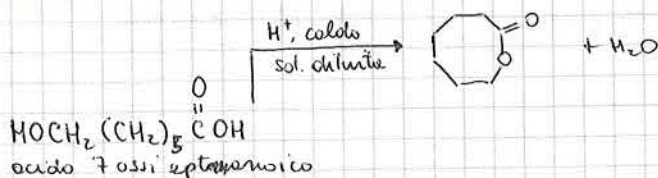 H⁺, caldo
sol. diluita
O
O
O
+ H₂O
HOCH₂ (CH₂)₅ C OH
acido 7 ossi eptanoico